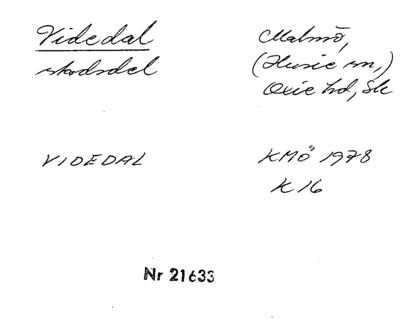 Videdal
stadsdel
Malmö,
(Husie sn,)
Oxie hd, Sk
VIDEDAL
KMÖ 1978
K 16
Nr 21633